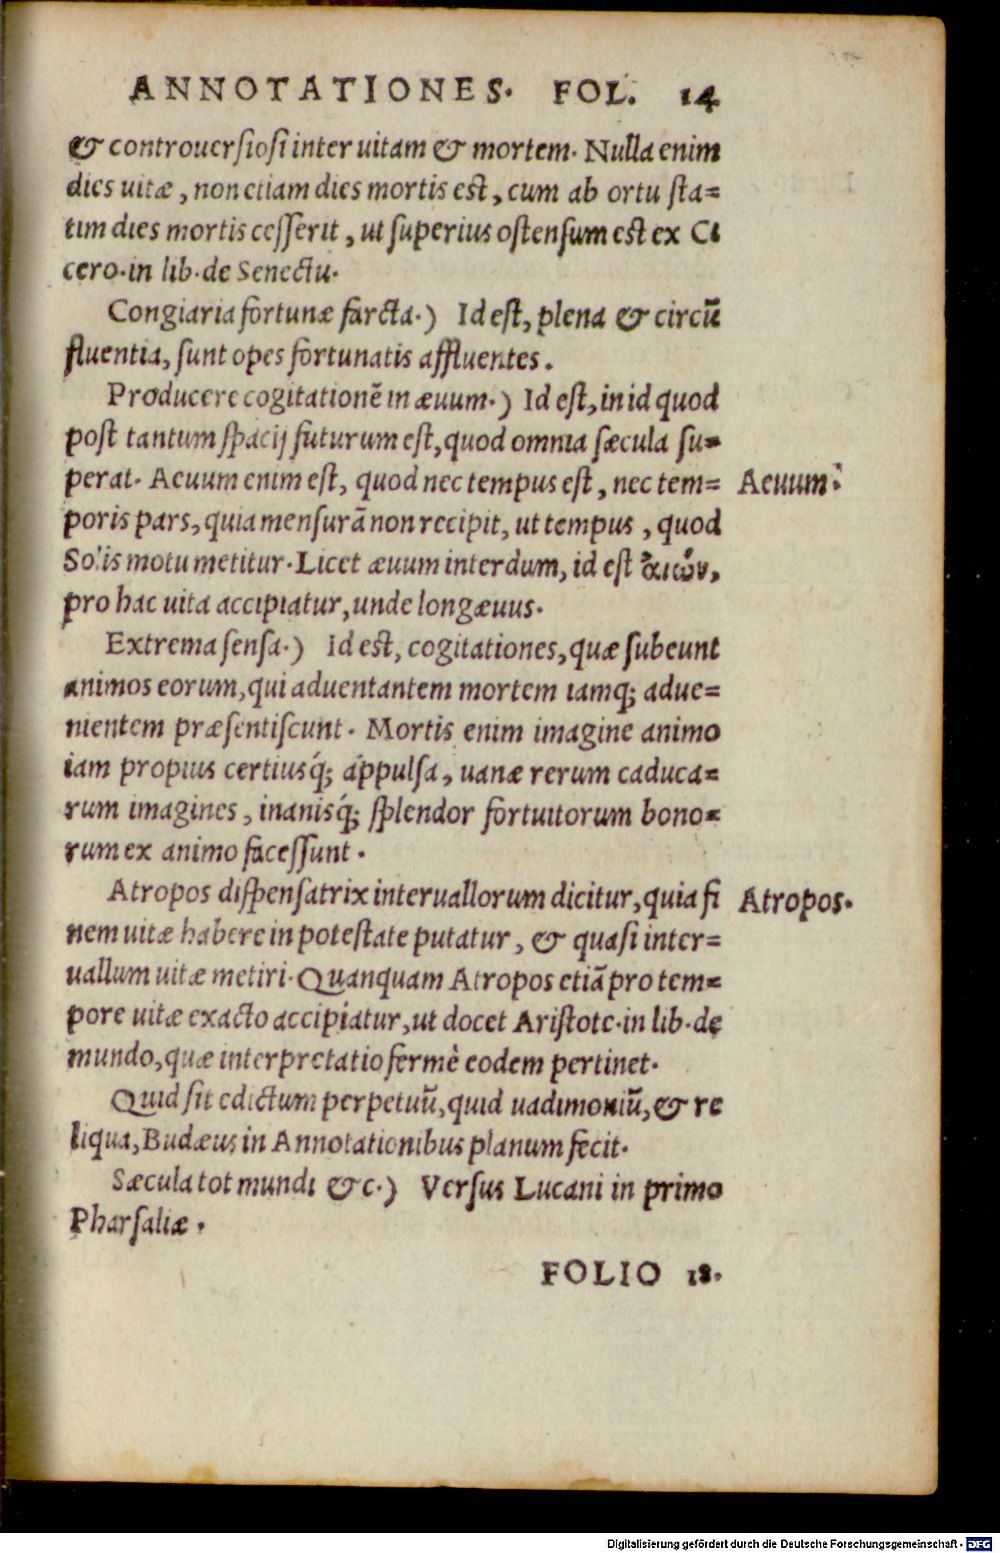 ANNOTATIONES. FOL. 14
& controuersiosi inter uitam & mortem. Nulla enim
dies uitæ, non etiam dies mortis est, cum ab ortu sta=
tim dies mortis cesserit, ut superius ostensum est ex Ci
cero. in lib. de Senectu.
Congiaria fortunæ farcta.) Id est, plena & circũ
fluentia, sunt opes fortunatis affluentes.
Producere cogitationẽ in æuum.) Id est, in id quod
post tantum spacij futurum est, quod omnia sæcula su=
perat. Aeuum enim est, quod nec tempus est, nec tem= Aeuum.
poris pars, quia mensurã non recipit, ut tempus, quod
Solis motu metitur. Licet æuum interdum, id est ἀιὼν,
pro hac uita accipiatur, unde longæuus.
Extrema sensa.) Id est, cogitationes, quæ subeunt
animos eorum, qui aduentantem mortem iamq; adue=
nientem præsentiscunt. Mortis enim imagine animo
iam propius certiusq́; appulsa, uanæ rerum caduca=
rum imagines, inanisq́; splendor fortuitorum bono=
rum ex animo facessunt.
Atropos dispensatrix interuallorum dicitur, quia fi Atropos.
nem uitæ habere in potestate putatur, & quasi inter=
uallum uitæ metiri. Quanquam Atropos etiã pro tem=
pore uitæ exacto accipiatur, ut docet Aristote. in lib. de
mundo, quæ interpretatio fermè eodem pertinet.
Quid sit edictum perpetuũ, quid uadimoniũ, & re
liqua, Budæus in Annotationibus planum fecit.
Sæcula tot mundi &c.) Versus Lucani in primo
Pharsaliæ.
FOLIO 18.
Digitalisierung gefördert durch die Deutsche Forschungsgemeinschaft - DFG